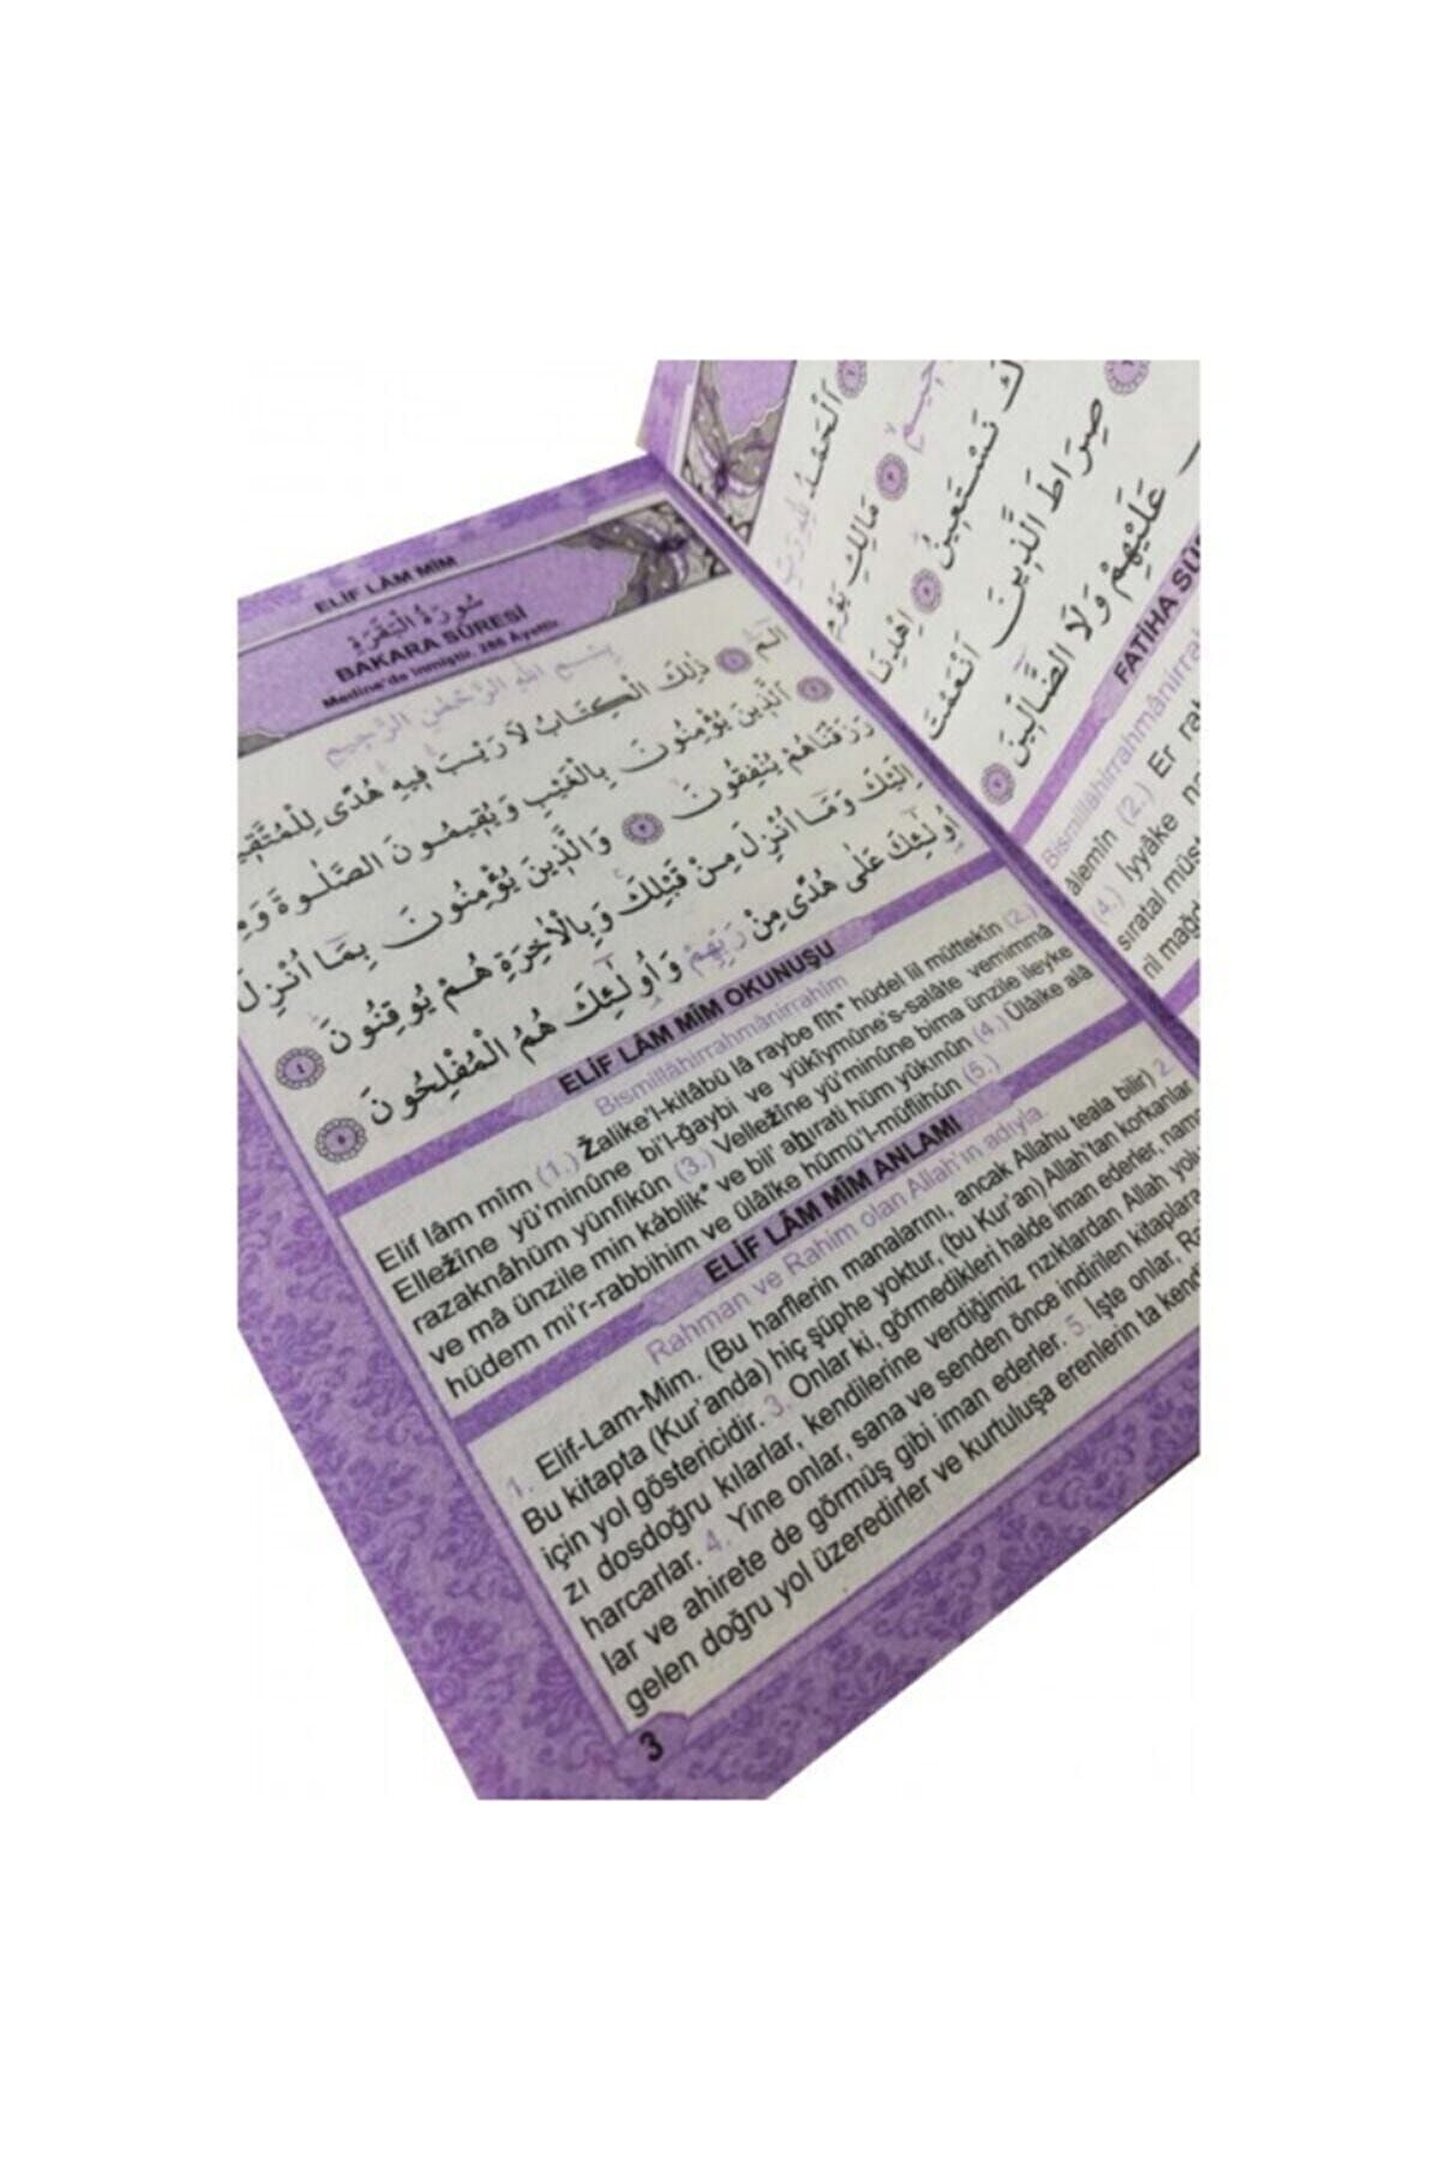 ELİF LÂM MÎM
سُورَةُ الْبَقَرَةِ
BAKARA SÛRESİ
Medine'de inmiştir. 286 Âyettir.
بِسْمِ اللهِ الرَّحْمٰنِ الرَّحِيمِ
الٓمٓ ﴿١﴾ ذٰلِكَ الْكِتَابُ لَا رَيْبَ فِيهِ هُدًى لِلْمُتَّقِي
﴿٢﴾ اَلَّذِينَ يُؤْمِنُونَ بِالْغَيْبِ وَيُقِيمُونَ الصَّلٰوةَ وَمِ
رَزَقْنَاهُمْ يُنْفِقُونَ ﴿٣﴾ وَالَّذِينَ يُؤْمِنُونَ بِمَٓا اُنْزِلَ
اِلَيْكَ وَمَٓا اُنْزِلَ مِنْ قَبْلِكَ وَبِالْاٰخِرَةِ هُمْ يُوقِنُونَ ﴿٤﴾
اُو۬لٰٓئِكَ عَلٰى هُدًى مِنْ رَبِّهِمْ وَاُو۬لٰٓئِكَ هُمُ الْمُفْلِحُونَ ﴿٥﴾
ELİF LÂM MÎM OKUNUŞU
Bismillâhirrahmânirrahîm
Elif lâm mîm (1.) Žalike'l-kitâbü lâ raybe fîh* hüdel lil müttekîn (2.)
Elležîne yü'minûne bi'l-ğaybi ve yükîymûne's-salâte vemimmâ
razaknâhüm yünfikûn (3.) Velležîne yü'minûne bima ünzile ileyke
ve mâ ünzile min kâblik* ve bil' aḥırati hüm yûkınûn (4.) Ülâike alâ
hüdem mi'r-rabbihim ve ülâike hümü'l-müflihûn (5.)
ELİF LÂM MÎM ANLAMI
Rahman ve Rahim olan Allah'ın adıyla
1. Elif-Lam-Mim. (Bu harflerin manalarını, ancak Allahu teala bilir) 2.
Bu kitapta (Kur'anda) hiç şüphe yoktur, (bu Kur'an) Allah'tan korkanlar
için yol göstericidir. 3. Onlar ki, görmedikleri halde iman ederler, nama
zı dosdoğru kılarlar, kendilerine verdiğimiz rızıklardan Allah yolu
harcarlar. 4. Yine onlar, sana ve senden önce indirilen kitaplara
lar ve ahirete de görmüş gibi iman ederler. 5. İşte onlar, Ra
gelen doğru yol üzeredirler ve kurtuluşa erenlerin ta kend
3
اَلْحَمْدُ لِلّٰهِ رَبِّ
مَالِكِ يَوْمِ
نَسْتَعِينُ ﴿٥﴾ اِهْدِنَا
صِرَاطَ الَّذِينَ اَنْعَمْتَ
عَلَيْهِمْ وَلَا الضَّٓالِّينَ ﴿٧﴾
FATİHA SÛR
Bismillâhirrahmânirra
âlemîn (2.) Er ra
(4.) İyyâke n
sıratal müst
nil mağd